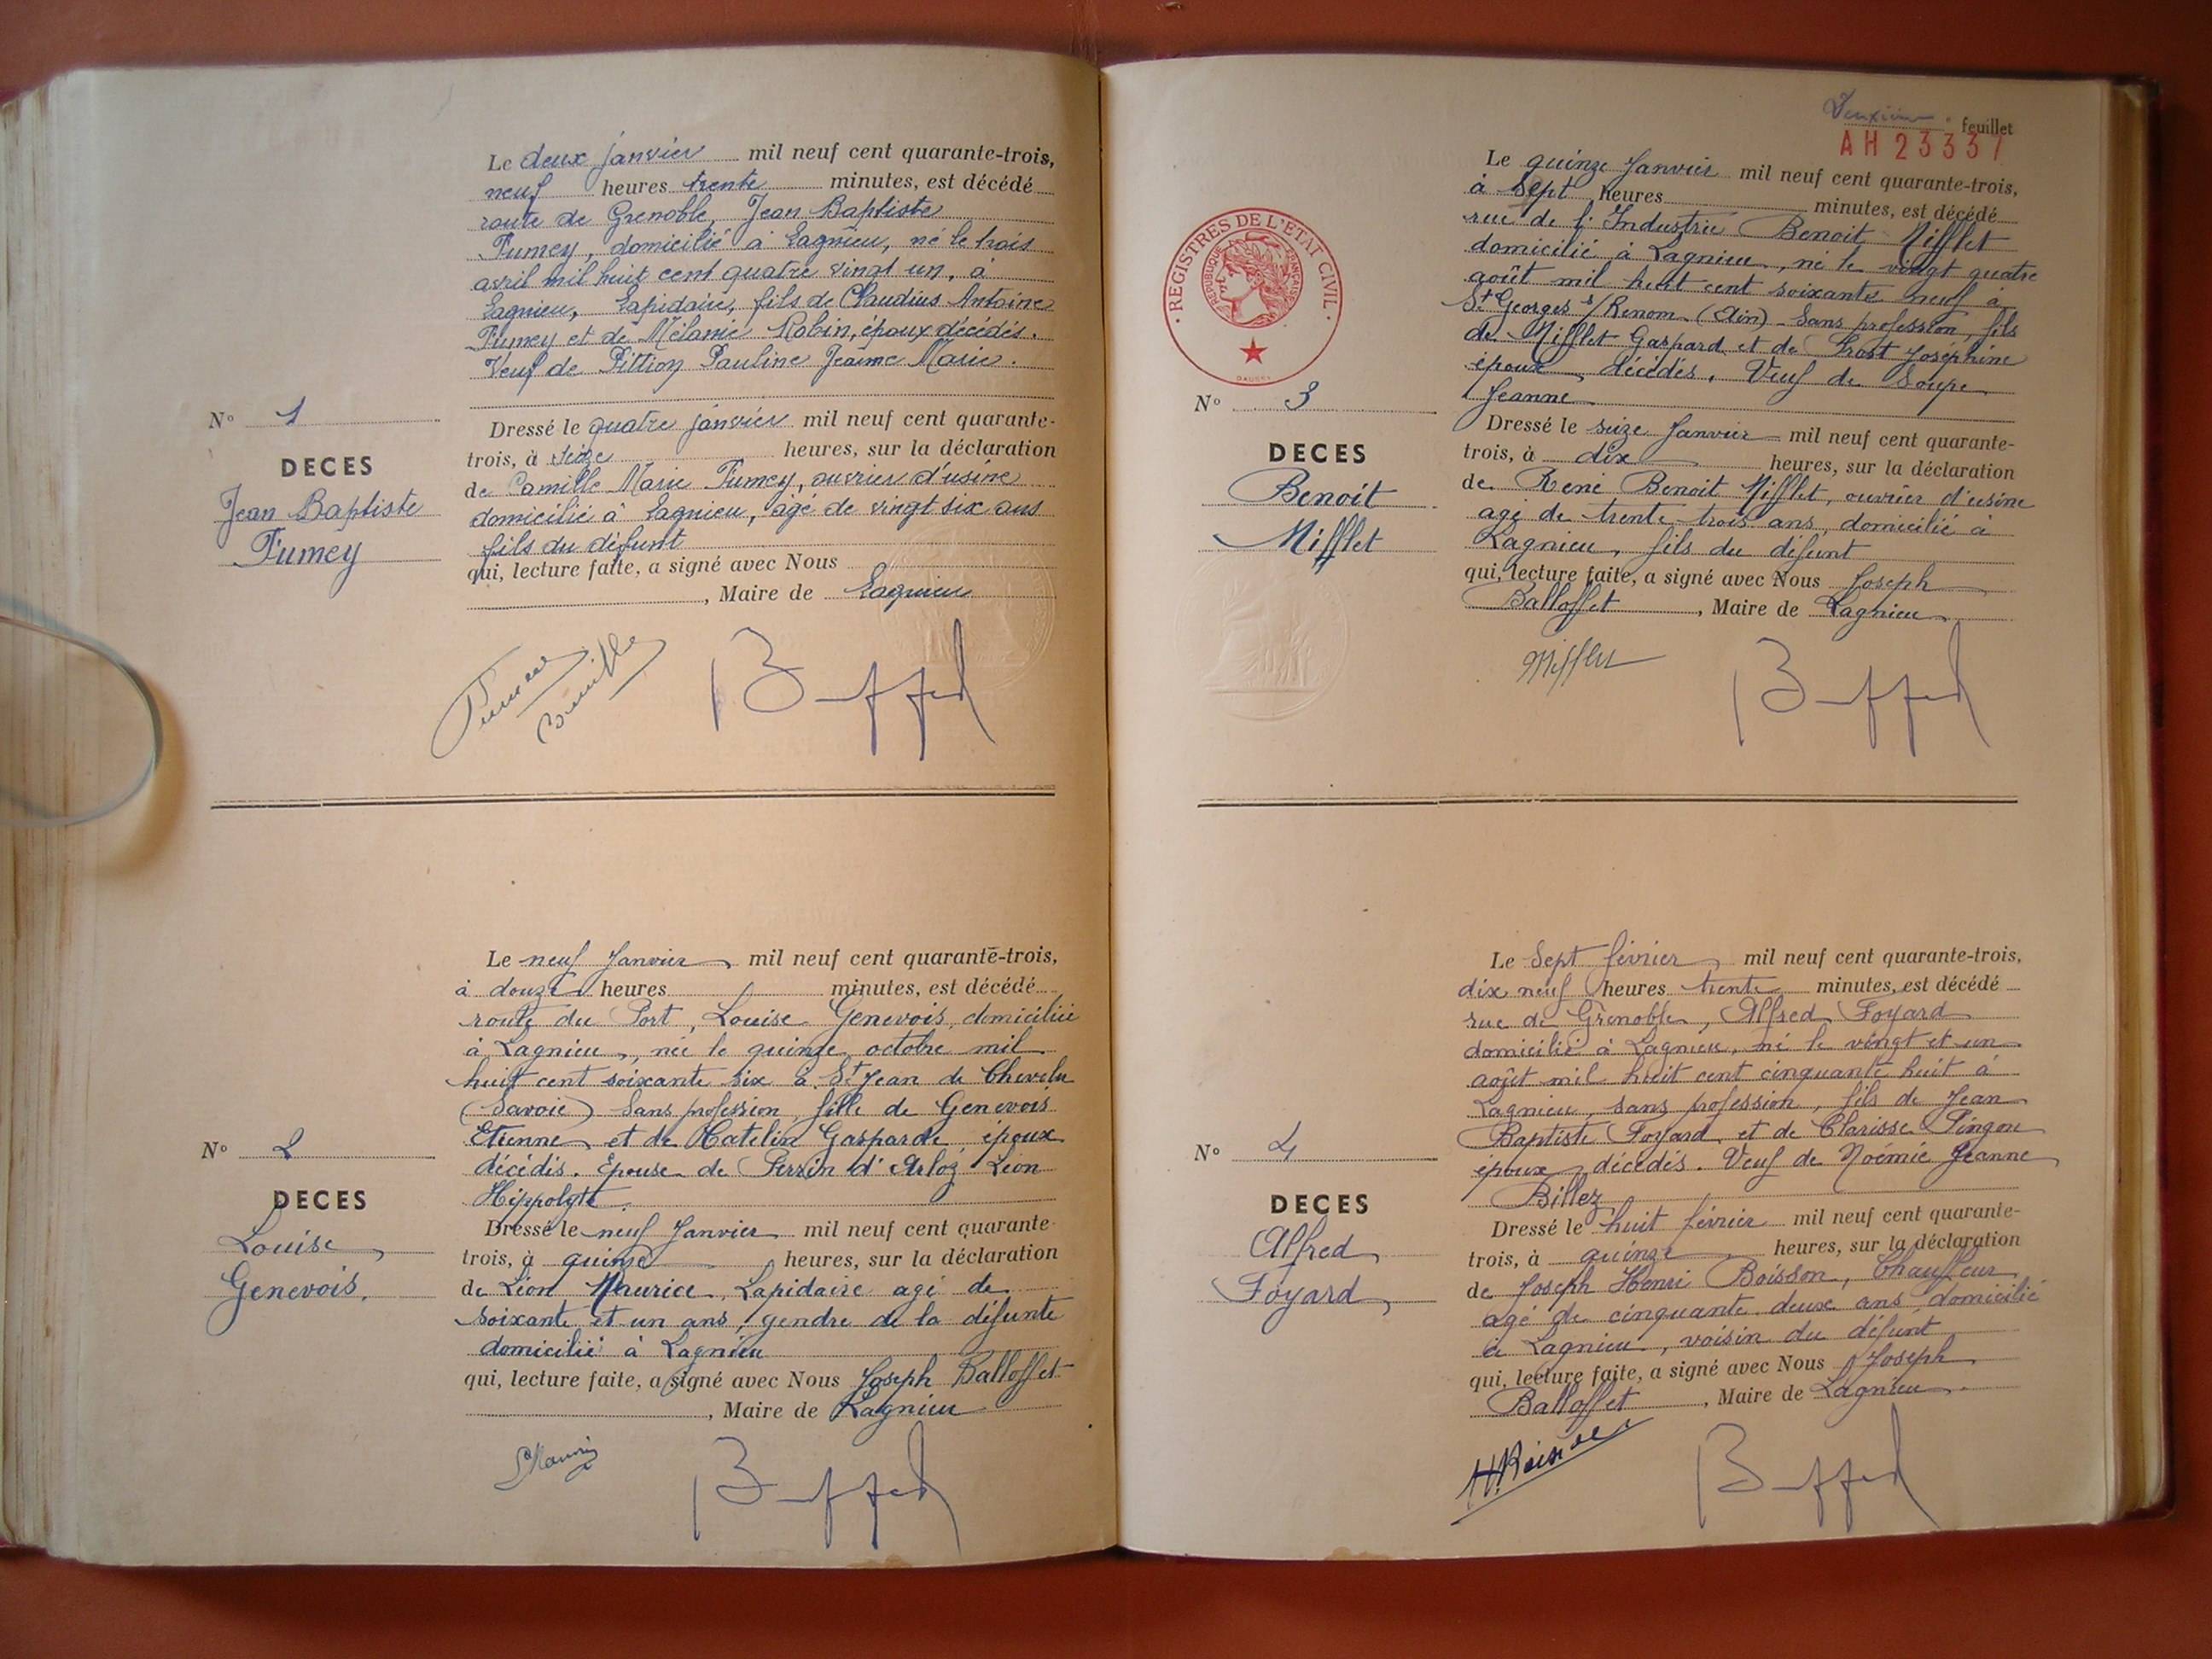 Le deux janvier mil neuf cent quarante-trois,
neuf heures trente minutes, est décédé
route de Grenoble, Jean Baptiste
Fumey, domicilié à Lagnieu, né le trois
avril mil huit cent quatre vingt un, à
Lagnieu, Lapidaire, fils de Claudius Antoine
Fumey et de Mélanie Robin, époux décédés.
Veuf de Pittion Pauline Jeanne Marie.
N° 1
DECES
Jean Baptiste
Fumey
Dressé le quatre janvier mil neuf cent quarante-
trois, à seize heures, sur la déclaration
de Camille Marie Fumey, ouvrier d'usine
domicilié à Lagnieu, âgé de vingt six ans
fils du défunt
qui, lecture faite, a signé avec Nous
, Maire de Lagnieu
Le neuf Janvier mil neuf cent quarante-trois,
à douze heures minutes, est décédé
route du Port, Louise Genevois, domiciliée
à Lagnieu, née le quinze octobre mil
huit cent soixante six à St Jean de Chevelu
(Savoie) Sans profession, fille de Genevois
Etienne et de Catelin Gasparde époux
décédés. Epouse de Perrin d'Arloz Léon
Hippolyte.
N° 2
DECES
Louise
Genevois.
Dressé le neuf Janvier mil neuf cent quarante
trois, à quinze heures, sur la déclaration
de Léon Maurice, Lapidaire agé de
soixante et un ans, gendre de la défunte
domicilié à Lagnieu
qui, lecture faite, a signé avec Nous Joseph Balloffet
, Maire de Lagnieu
Deuxième feuillet
AH 23337
Le quinze Janvier mil neuf cent quarante-trois,
à Sept heures minutes, est décédé
rue de l'Industrie Benoit Mifflet
domicilié à Lagnieu, né le vingt quatre
août mil huit cent soixante neuf à
St Georges s/Renom (Ain) Sans profession, fils
de Mifflet Gaspard et de Prost Joséphine
époux décédés. Veuf de Soupe
Jeanne
REGISTRES DE L'ETAT CIVIL
REPUBLIQUE FRANCAISE
N° 3
DECES
Benoit
Mifflet
Dressé le seize Janvier mil neuf cent quarante-
trois, à dix heures, sur la déclaration
de René Benoit Mifflet, ouvrier d'usine
agé de trente trois ans, domicilié à
Lagnieu, fils du défunt
qui, lecture faite, a signé avec Nous Joseph
Balloffet, Maire de Lagnieu
Le Sept février mil neuf cent quarante-trois,
dix neuf heures trente minutes, est décédé
rue de Grenoble, Alfred Foyard
domicilié à Lagnieu, né le vingt et un
août mil huit cent cinquante huit à
Lagnieu, sans profession, fils de Jean
Baptiste Foyard et de Clarisse Pingon
époux décédés. Veuf de Noémie Jeanne
Billez
N° 4
DECES
Alfred
Foyard
Dressé le huit février mil neuf cent quarante-
trois, à quinze heures, sur la déclaration
de Joseph Henri Boisson, Chauffeur
agé de cinquante deux ans domicilié
à Lagnieu, voisin du défunt
qui, lecture faite, a signé avec Nous Joseph
Balloffet, Maire de Lagnieu